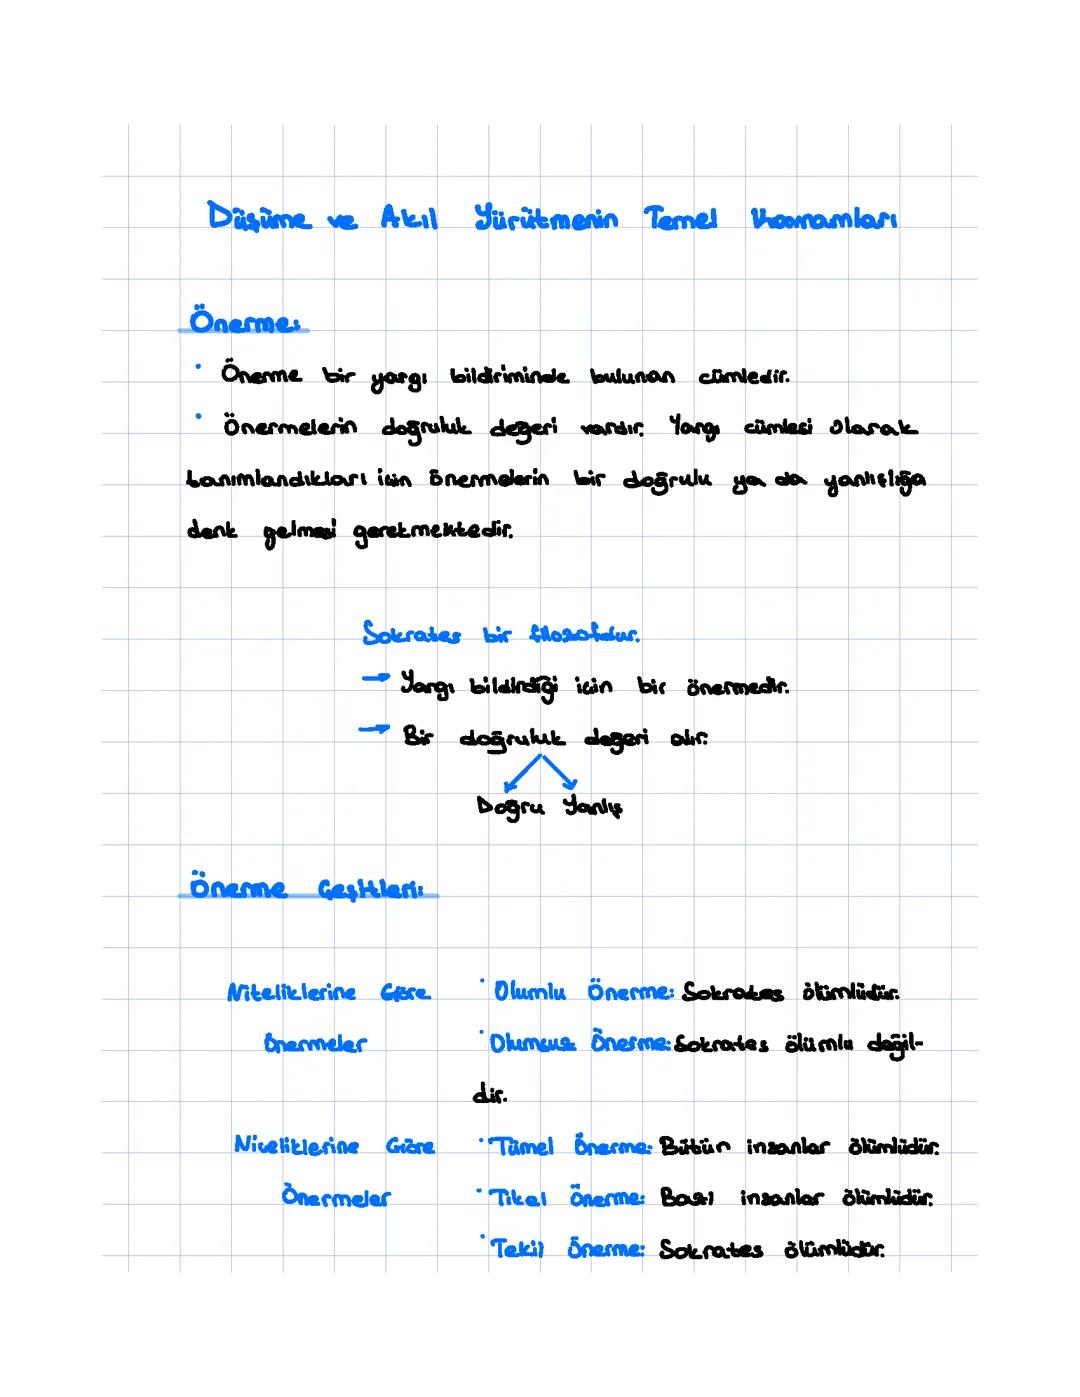 Düşüme ve Akıl Yürütmenin Temel Kavramları
Önerme:
• Önerme bir yargı bildiriminde bulunan cümledir.
• Önermelerin doğruluk değeri vardır. Yargı cümlesi olarak
tanımlandıkları için önermelerin bir doğrulu ya da yanlışlığa
denk gelmesi gerekmektedir.
Sokrates bir filozofdur.
→ Yargı bildirdiği için bir önermedir.
→ Bir doğruluk değeri alır.
Doğru Yanlış
Önerme Çeşitleri:
Niteliklerine Göre • Olumlu Önerme: Sokrates ölümlüdür.
Önermeler • Olumsuz Önerme: Sokrates ölümlü değil-
dir.
Niceliklerine Göre • Tümel Önerme: Bütün insanlar ölümlüdür.
Önermeler • Tikel Önerme: Bazı insanlar ölümlüdür.
• Tekil Önerme: Sokrates ölümlüdür.